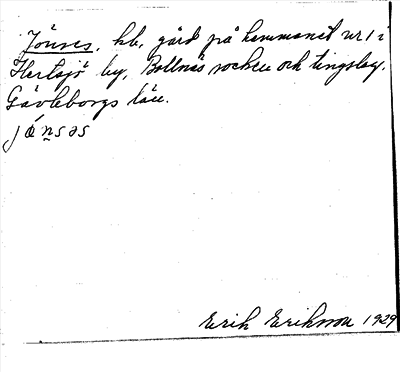 Jönses, hb, gård på hemmanet nr 1 i
Hertsjö by, Bollnäs socken och tingslag,
Gävleborgs län.
jó̤nsəs
Erik Eriksson 1929